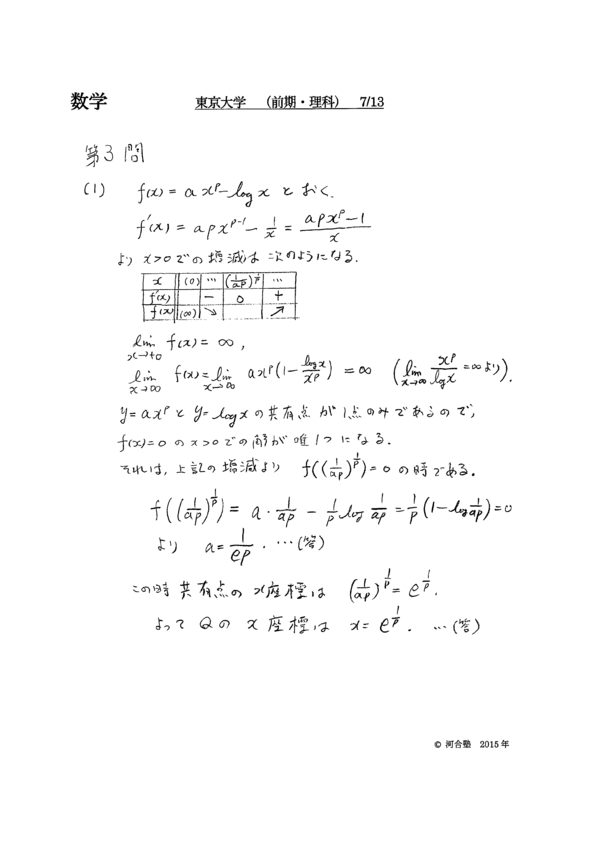 数学 東京大学 (前期・理科) 7/13
第3問
(1) f(x) = a x^p − log x とおく.
f'(x) = a p x^{p-1} − 1/x = (a p x^p − 1)/x
より x>0 での増減は次のようになる.
x (0) … (1/ap)^{1/p} …
f'(x) − 0 +
f(x) (∞) ↘ ↗
lim_{x→+0} f(x) = ∞ ,
lim_{x→∞} f(x) = lim_{x→∞} a x^p (1 − log x/x^p) = ∞ (lim_{x→∞} x^p/log x = ∞ より).
y = a x^p と y = log x の共有点が1点のみであるので,
f(x)=0 の x>0 での解が唯1つになる.
それは, 上記の増減より f((1/ap)^{1/p}) = 0 の時である.
f((1/ap)^{1/p}) = a · 1/ap − 1/p log 1/ap = 1/p (1 − log 1/ap) = 0
より a = 1/ep . …(答)
この時 共有点の x座標は (1/ap)^{1/p} = e^{1/p} .
よって Q の x 座標は x = e^{1/p} . …(答)
© 河合塾 2015年